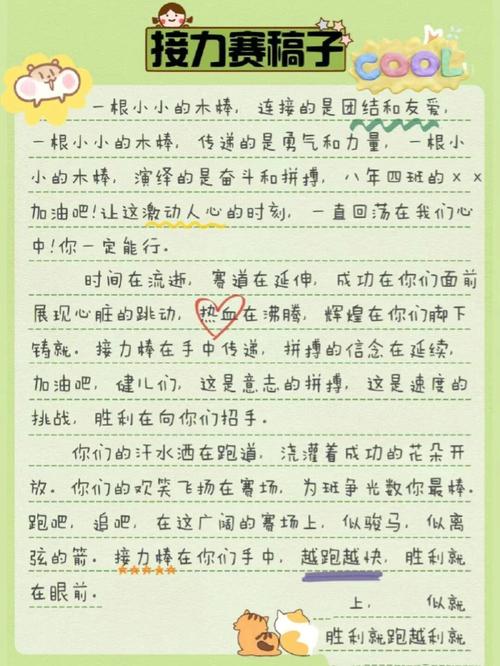 接力赛稿子
COOL
一根小小的木棒，连接的是团结和友爱，
一根小小的木棒，传递的是勇气和力量，一根小
小的木棒，演绎的是奋斗和拼搏，八年四班的xx
加油吧!让这激动人心的时刻，一直回荡在我们心
中!你一定能行。
时间在流逝，赛道在延伸，成功在你们面前
展现心脏的跳动，热血在沸腾，辉煌在你们脚下
铸就。接力棒在手中传递，拼搏的信念在延续，
加油吧，健儿们，这是意志的拼搏，这是速度的
挑战，胜利在向你们招手。
你们的汗水洒在跑道，浇灌着成功的花朵开
放。你们的欢笑飞扬在赛场，为班争光数你最棒。
跑吧，追吧，在这广阔的赛场上，似骏马，似离
弦的箭。接力棒在你们手中，越跑越快，胜利就
在眼前。
上，似就
胜利就跑越利就